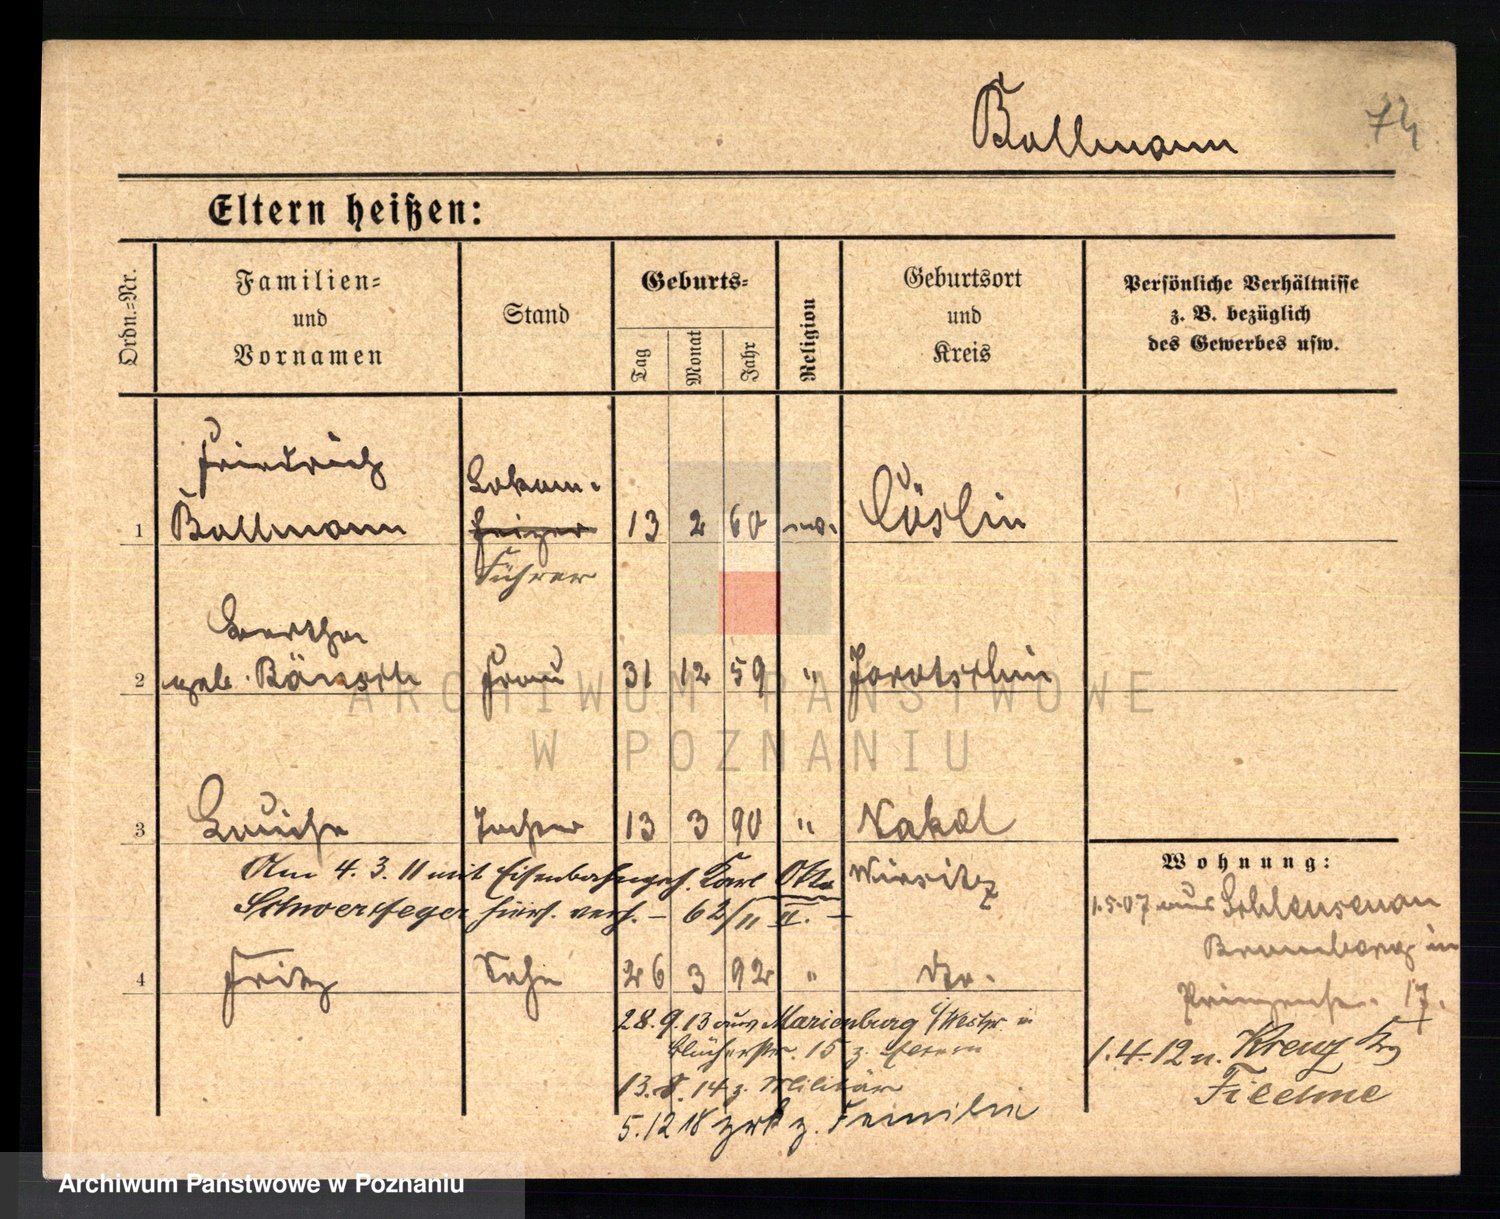 Bollmann
74
Eltern heißen:
Ordn.=Nr.
Familien=
und
Vornamen
Stand
Geburts=
Tag
Monat
Jahr
Religion
Geburtsort
und
Kreis
Persönliche Verhältnisse
z. B. bezüglich
des Gewerbes usw.
Friedrich
1 Bollmann
Lokom.
heizer
Führer
13 2 60 ev. Cöslin
Bertha
2 geb. Frau 31 12 59 " Jarotschin
3 Louise Tochter 13 3 90 " Nakel
Wirsitz
Am 4. 3. 11 mit Eisenbahngeh. Karl Otto
Schwertfeger hiers. verh. – 62/11 II. –
4 Fritz Sohn 26 3 92 " do.
28. 9. 13 aus Marienburg i/Westpr. in
Blücherstr. 15 z. Eltern
13. 8. 14 z. Militär
5. 12 18 zrk z. Familie
Wohnung:
1.5.07 aus Schleusenau
Bromberg in
Prinzenstr. 17.
1.4.12 n. Kreuz Krs
Filehne
ARCHIWUM PAŃSTWOWE
W POZNANIU
Archiwum Państwowe w Poznaniu